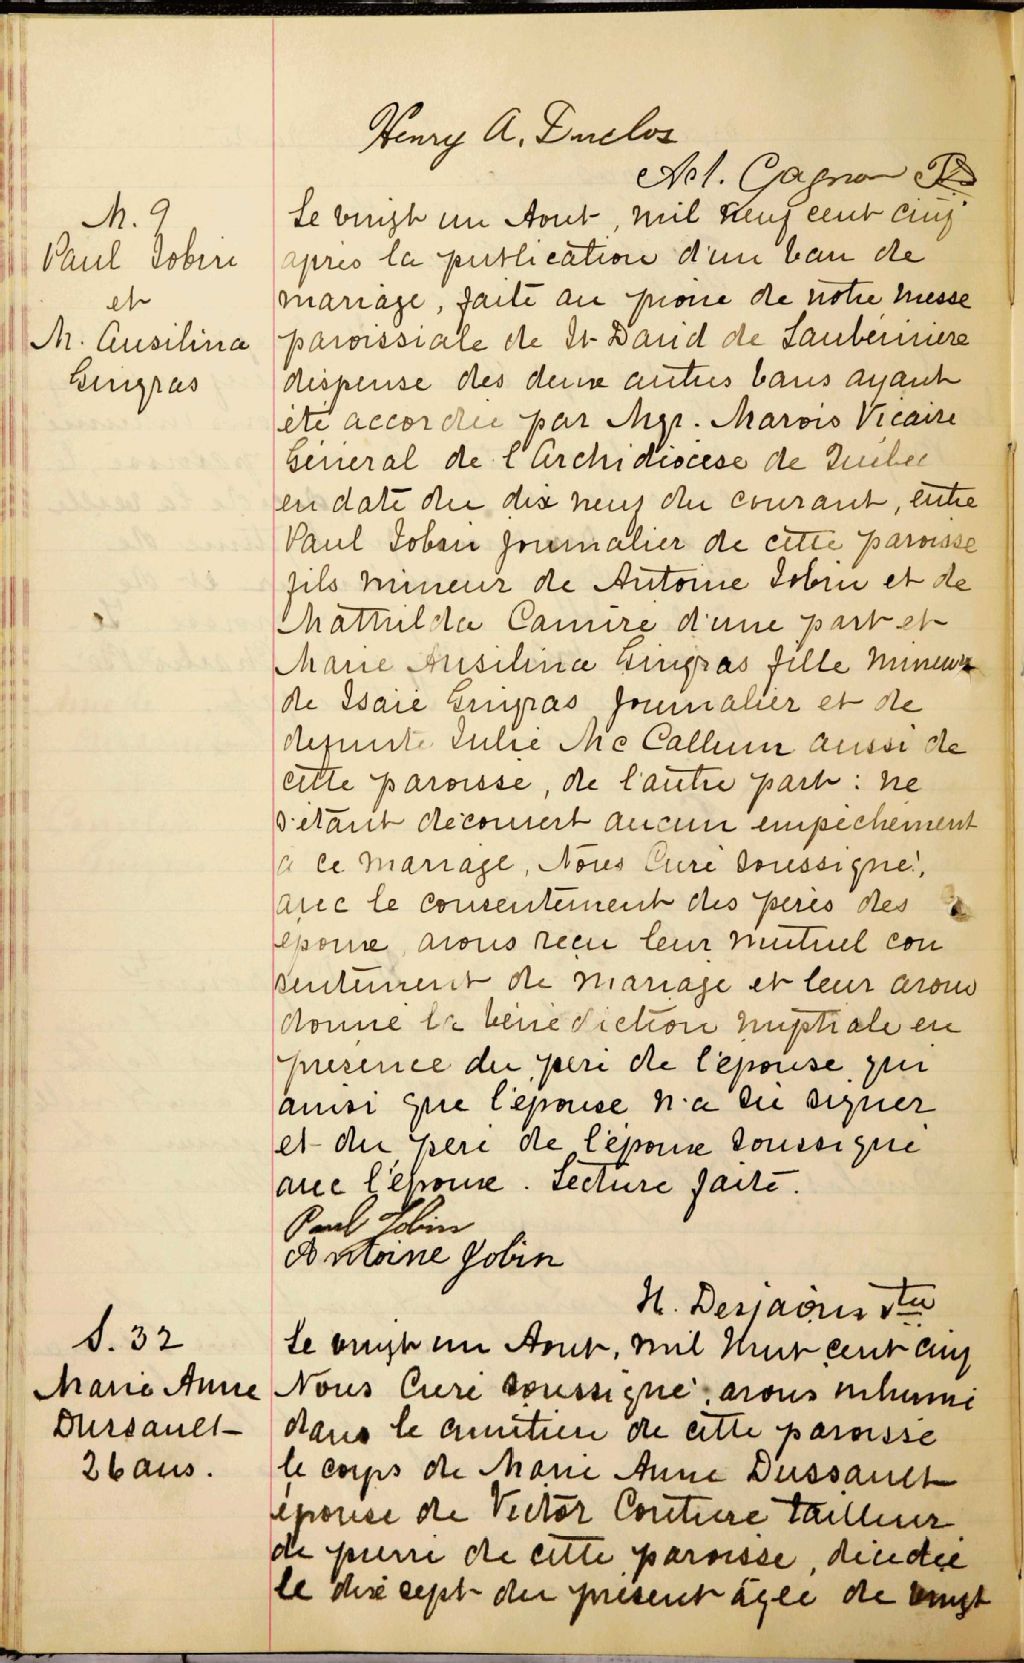 Henry A. Duclos
Act. Gagnon
M. 9
Paul Jobin
et
M. Ausilina
Gingras
Le vingt un Aout, mil neuf cent cinq
après la publication d'un ban de
mariage, faite au prone de notre messe
paroissiale de St David de Laubérivière
dispense des deux autres bans ayant
été accordée par Mgr. Marois Vicaire
Général de l'Archidiocèse de Québec
en date du dix neuf du courant, entre
Paul Jobin journalier de cette paroisse
fils mineur de Antoine Jobin et de
Mathilda Camiré d'une part et
Marie Ausilina Gingras fille mineure
de Isaïe Gingras journalier et de
defunte Julie Mc Callum aussi de
cette paroisse, de l'autre part : ne
s'étant découvert aucun empêchement
à ce mariage, Nous Curé soussigné,
avec le consentement des pères des
époux, avons reçu leur mutuel con
sentement de mariage et leur avons
donné la bénédiction nuptiale en
présence du père de l'épouse qui
ainsi que l'épouse n'a su signer
et du père de l'époux soussigné
avec l'époux. Lecture faite.
Paul Jobin
Antoine Jobin
H. Desjardins ptre
S. 32
Marie Anne
Dussault
26 ans.
Le vingt un Aout, mil neuf cent cinq
Nous Curé soussigné, avons inhumé
dans le cimetière de cette paroisse
le corps de Marie Anne Dussault
épouse de Victor Couture tailleur
de pierre de cette paroisse, décédée
le dix sept du présent âgée de vingt